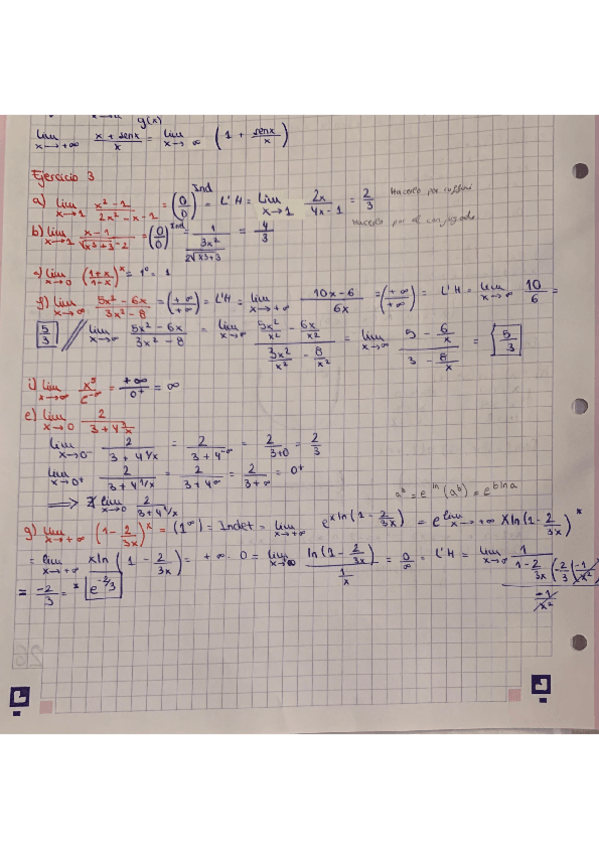 g(x)
lim x→+∞ (x + senx)/x = lim x→∞ (1 + senx/x)
Ejercicio 3
a) lim x→1 (x² - 1)/(2x² - x - 1) = (0/0) Ind = L'H = lim x→1 2x/(4x - 1) = 2/3 hacerlo por ruffini
b) lim x→1 (x - 1)/(√(x³+3) - 2) = (0/0) Ind = 1/(3x²/(2√(x3+3))) = 4/3 hacerlo por el conjugado
lim x→0 ((1+x)/(1-x))^x = 1⁰ = 1
lim x→∞ (5x² - 6x)/(3x² - 8) = (+∞/+∞) = L'H = lim x→+∞ (10x - 6)/6x = (+∞/+∞) = L'H = lim x→∞ 10/6 =
5/3 // lim x→∞ (5x² - 6x)/(3x² - 8) = lim x→∞ (5x²/x² - 6x/x²)/(3x²/x² - 8/x²) = lim x→∞ (5 - 6/x)/(3 - 8/x) = 5/3
i) lim x→∞ x⁵/e^-∞ = +∞/0⁺ = ∞
e) lim x→0 2/(3 + 4^(1/x))
lim x→0⁻ 2/(3 + 4^(1/x)) = 2/(3 + 4^-∞) = 2/(3+0) = 2/3
lim x→0⁺ 2/(3 + 4^(1/x)) = 2/(3 + 4^∞) = 2/(3+∞) = 0⁺
⟹ ∄ lim x→0 2/(3 + 4^(1/x))
a^b = e^ln (a^b) = e^(b ln a)
g) lim x→+∞ (1 - 2/3x)^x = (1^∞) = Indet = lim x→+∞ e^(x ln(1 - 2/3x)) = e^(lim x→+∞ x ln(1 - 2/3x)) *
= lim x→+∞ x ln(1 - 2/3x) = +∞ · 0 = lim x→∞ ln(1 - 2/3x)/(1/x) = 0/∞ = L'H = lim x→∞ (1/(1 - 2/3x) (-2/3 (-1/x²)))/(-1/x²)
= -2/3 = * e^(-2/3)